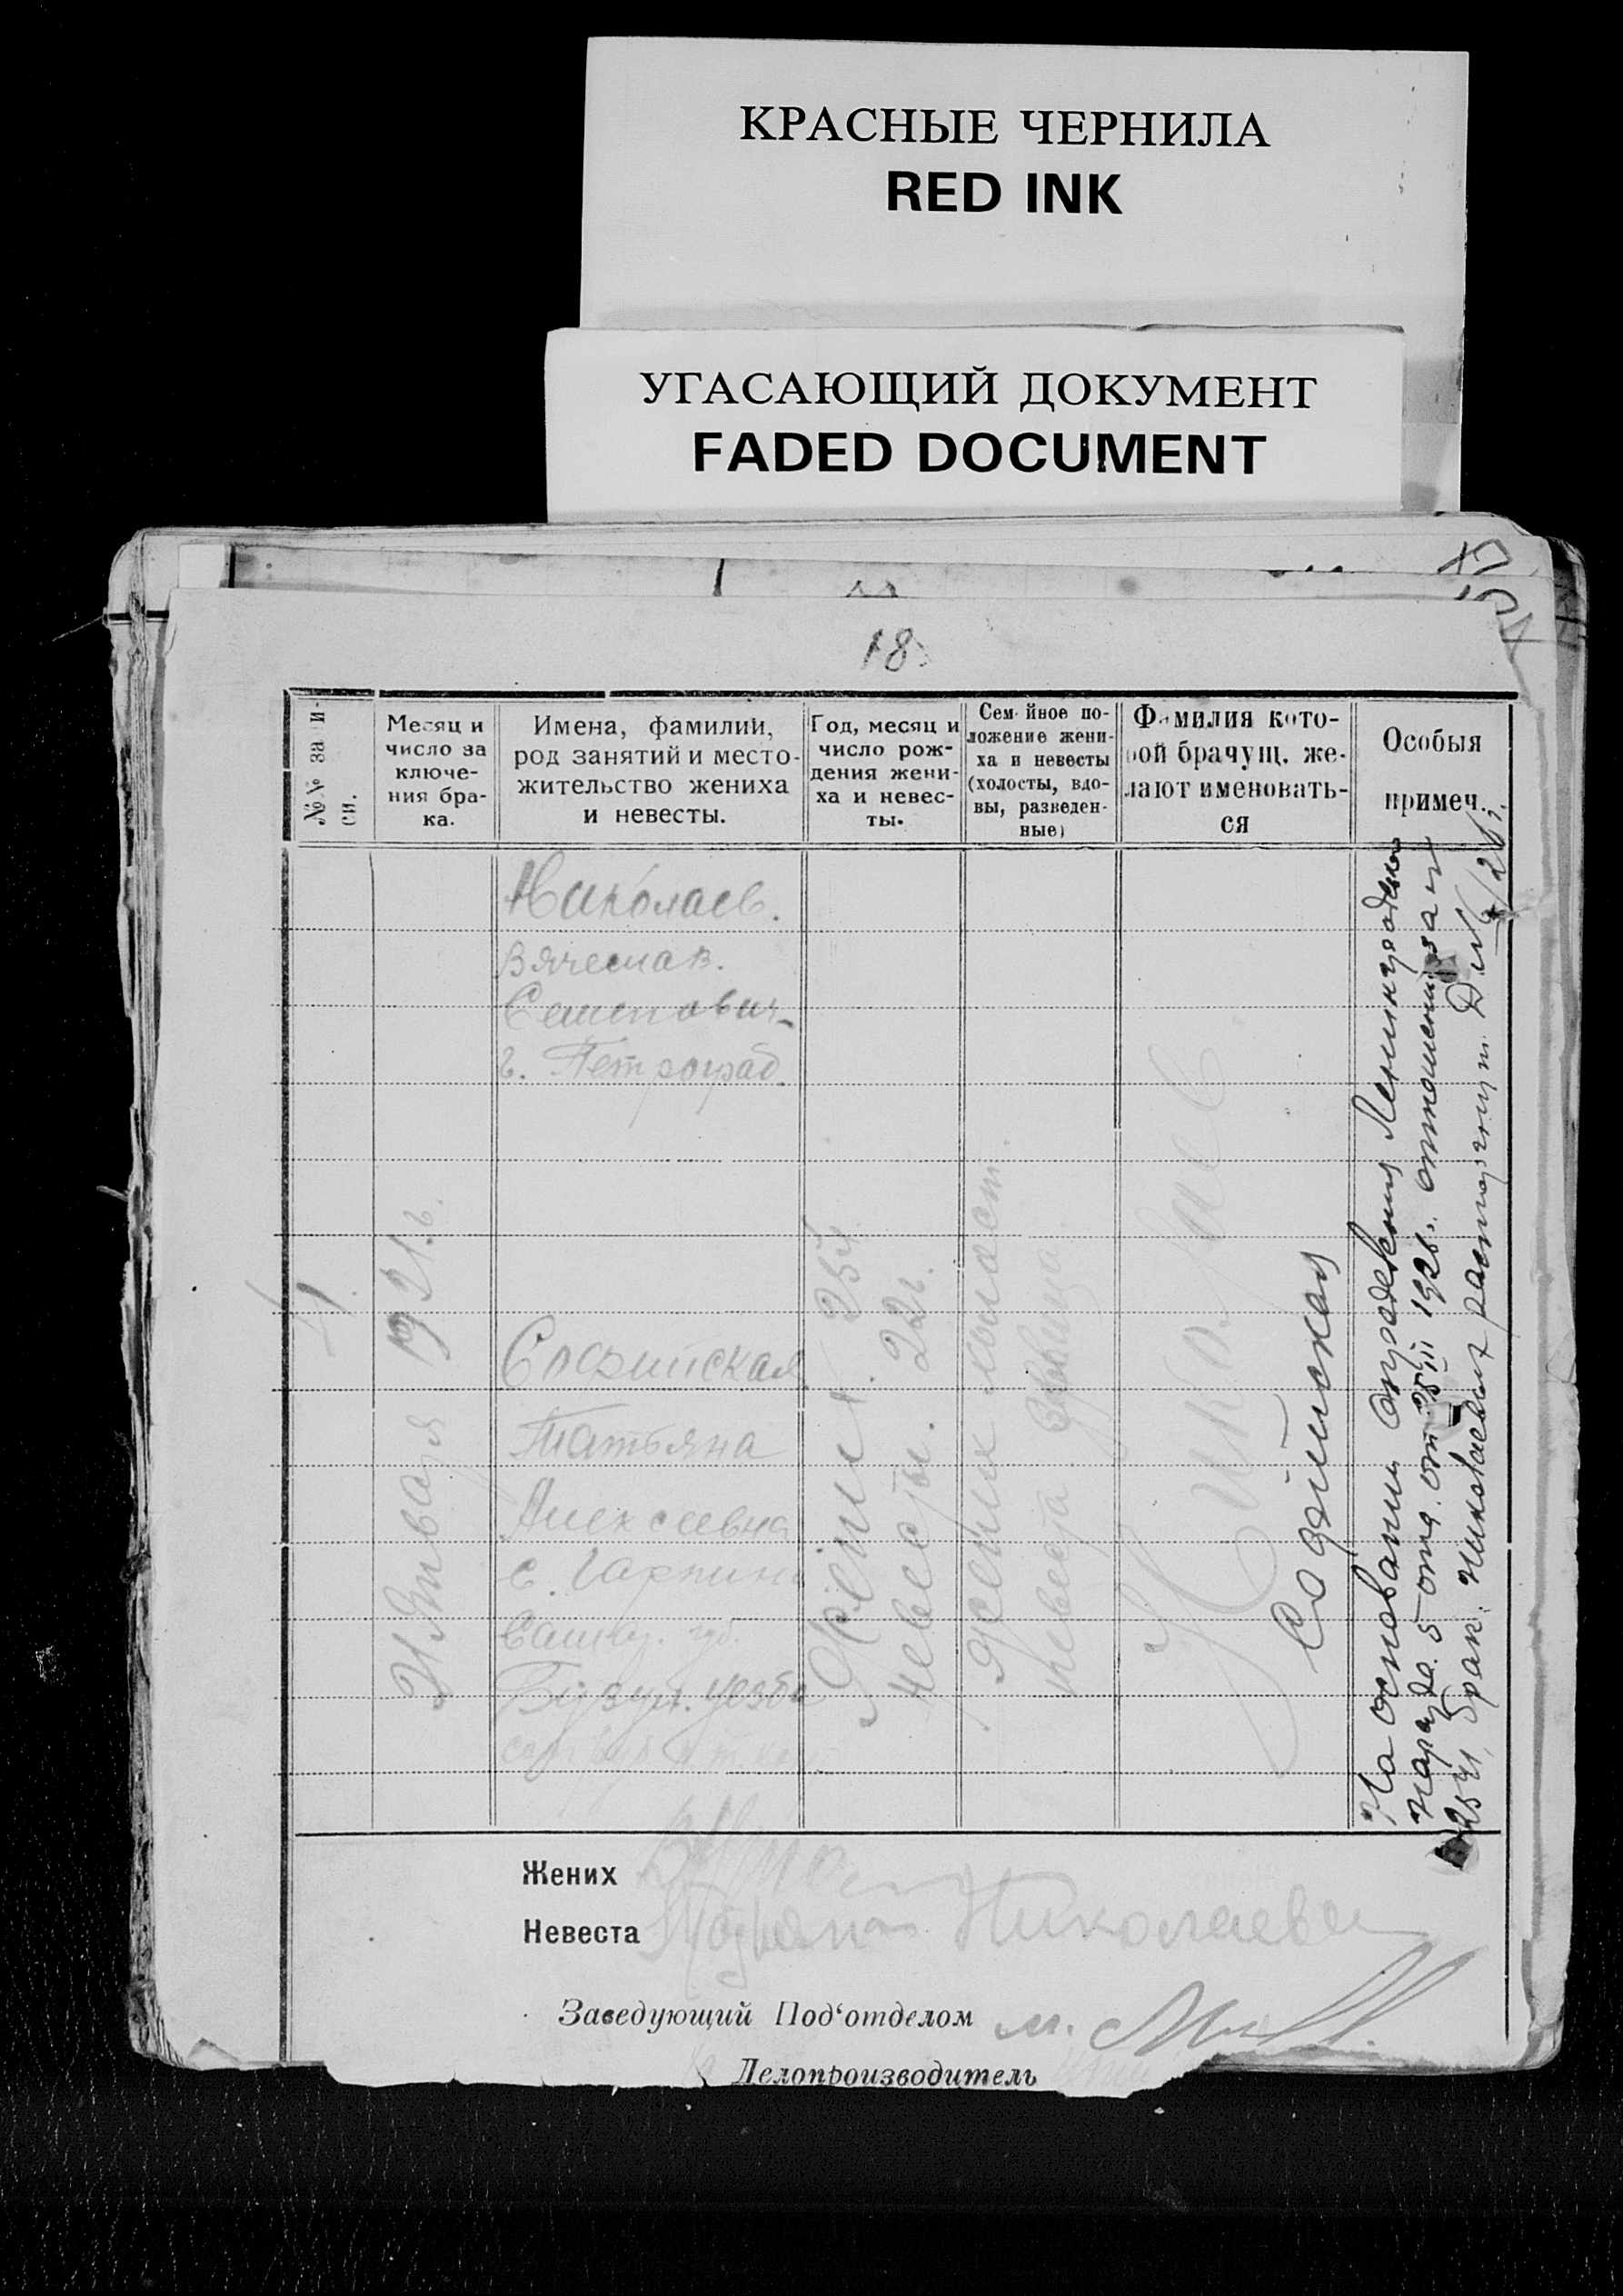 КРАСНЫЕ ЧЕРНИЛА
RED INK
УГАСАЮЩИЙ ДОКУМЕНТ
FADED DOCUMENT
18
№№ за и-
си.
Месяц и
число за
ключе-
ния бра-
ка.
Имена, фамилии,
род занятий и место-
жительство жениха
и невесты.
Год, месяц и
число рож-
дения жени-
ха и невес-
ты.
Сем йное по-
ложение жени-
ха и невесты
(холосты, вдо-
вы, разведен-
ные)
Фамилия кото-
рой брачущ. же-
лают именовать-
ся
Особыя
примеч.
Января 1921 г.
Николаев.
Вячеслав.
Семенович
г. Петроград.
Софийская
Татьяна
Алексеевна
с.
Самар. губ.
Бузул. уезда
Жених 25 л.
невесты. 22 г.
Жених холост.
невеста девица
Николаев
Софийская
На основании определения Ленинградского
нарсуда 5 отд. от 25/III 1926 г. отношения за №
2541, брак Николаевых расторгнут. Д №
Жених
Невеста Татьяна Николаева
Заведующий Под‘отделом
Делопроизводитель